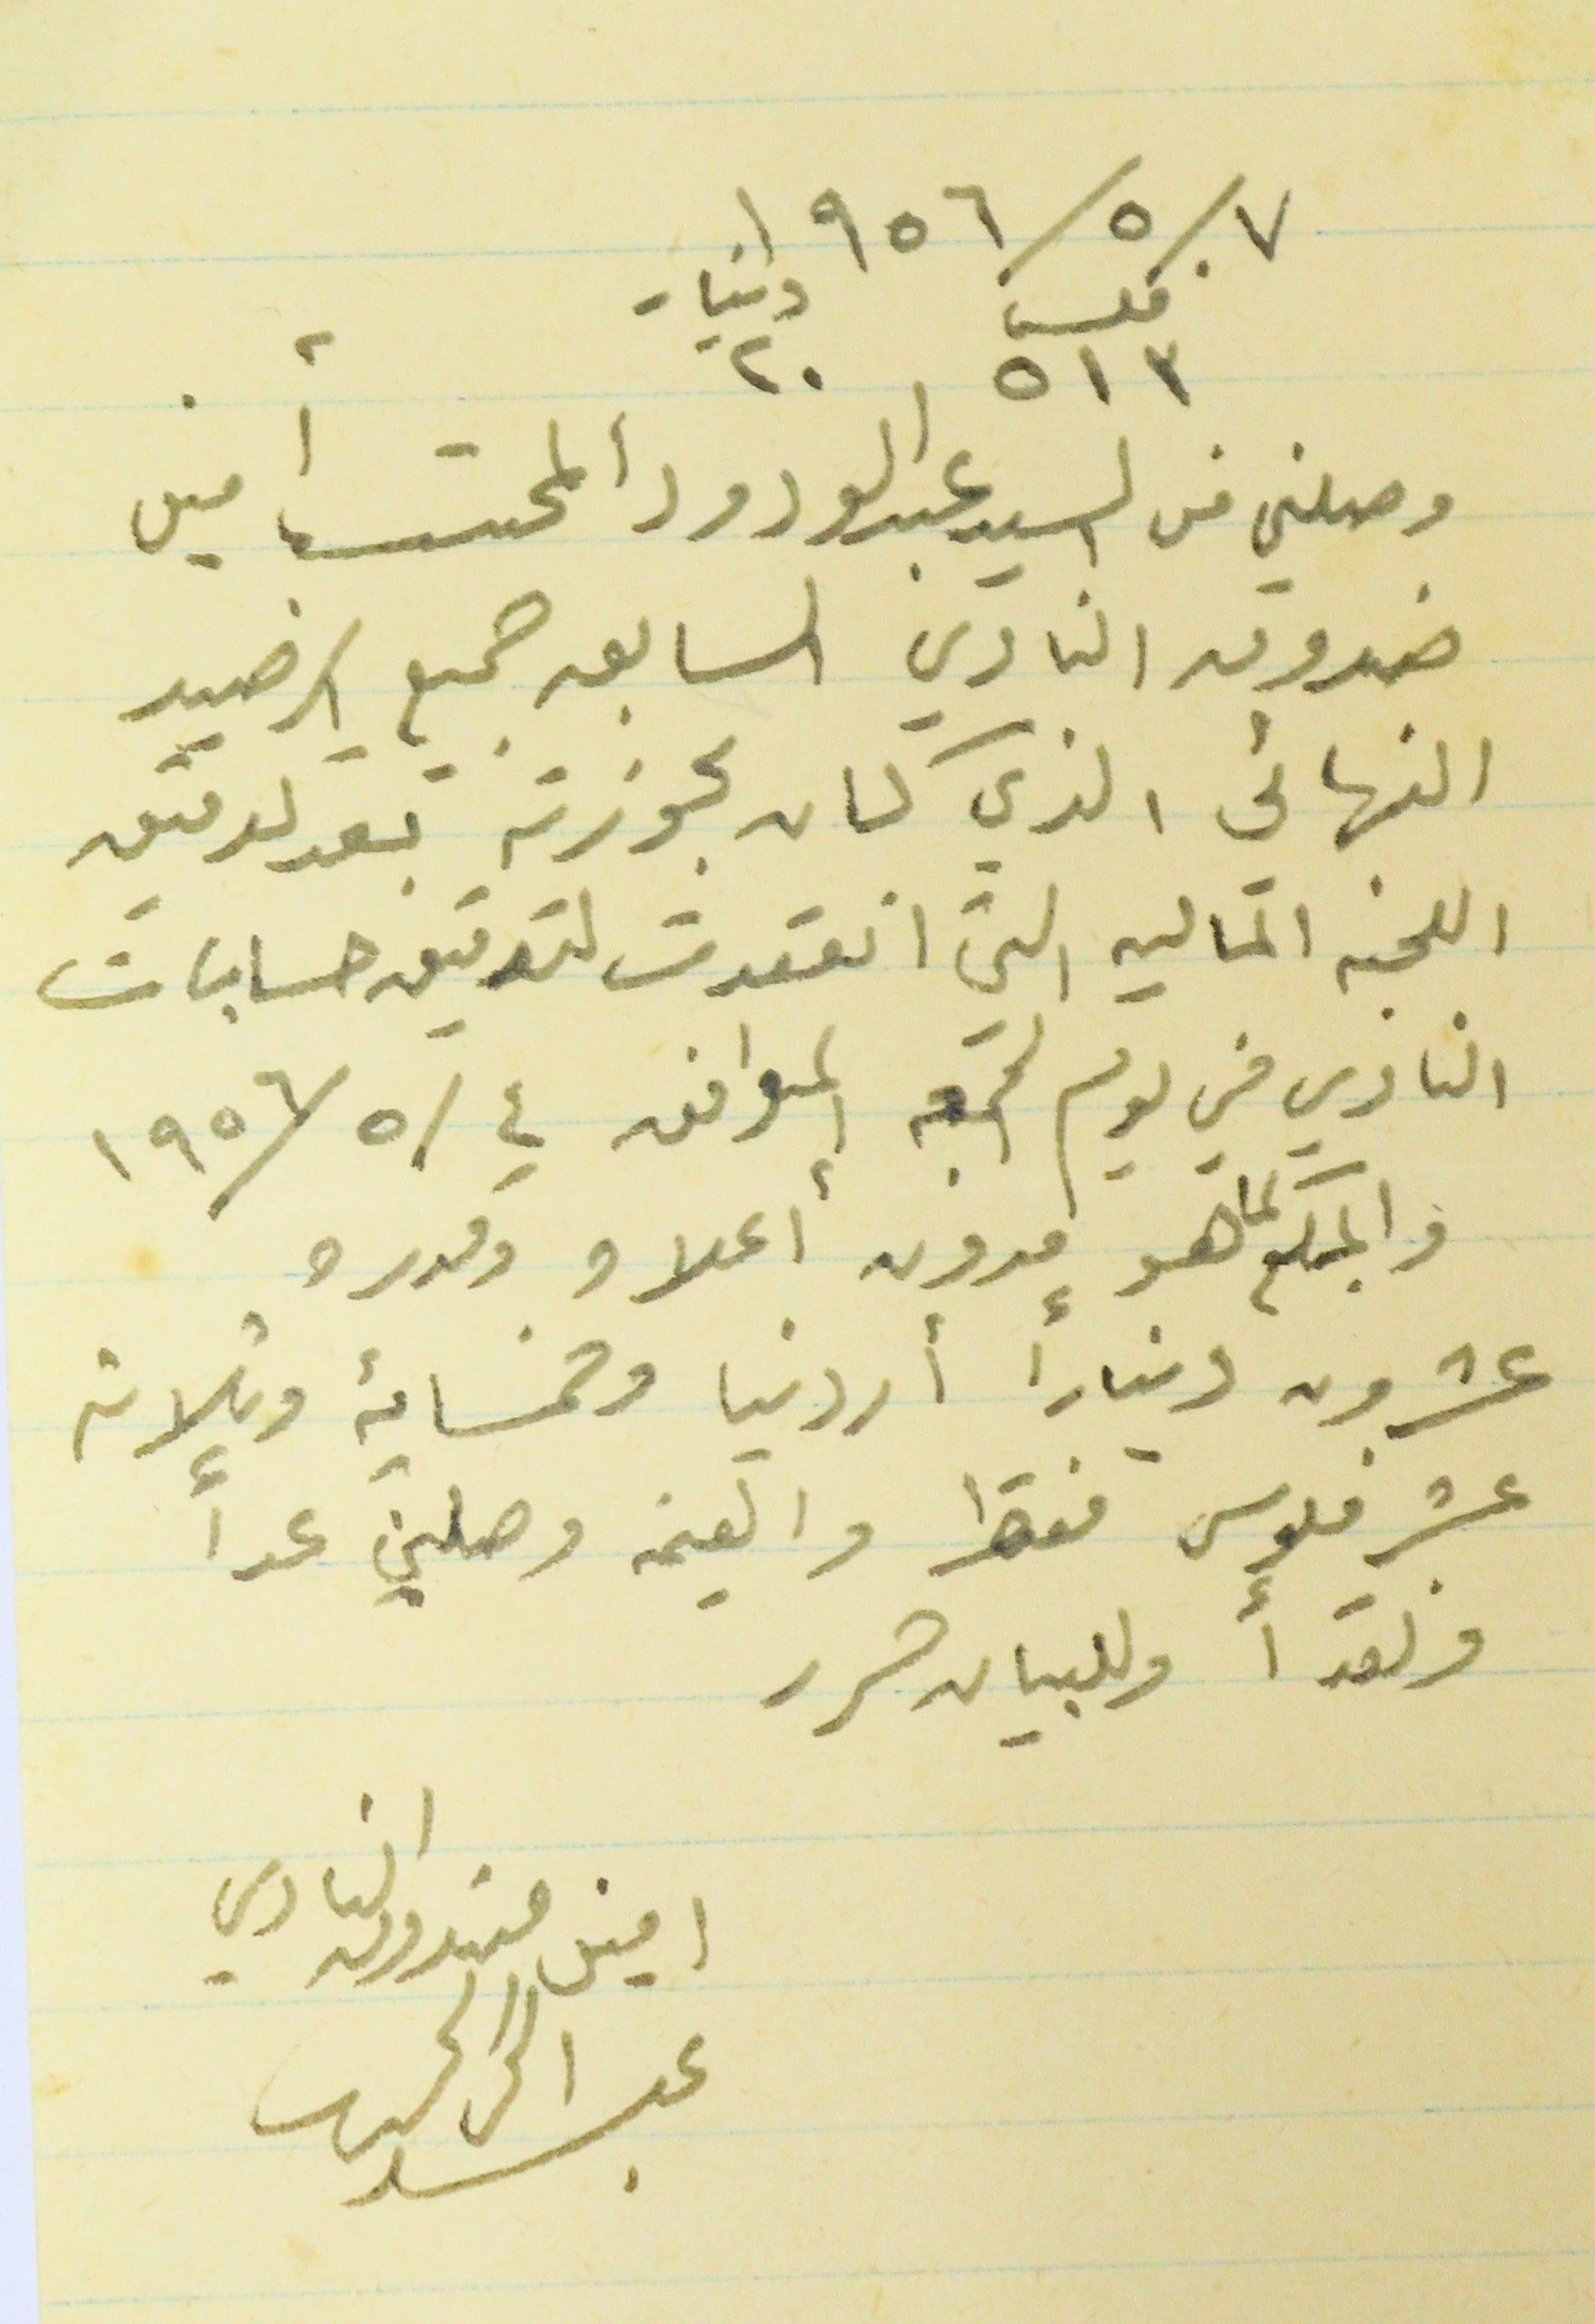 ٧/٥/١٩٥٦
فلس دينار
٥١٣ ٢٠
وصلني من السيد عبد الودود المحتسب أمين
صندوق النادي السابق جميع الرصيد
النهائي الذي كان بحوزته بعد تدقيق
اللجنه الماليه التي انعقدت لتدقيق حسابات
النادي في يوم الجمعه الموافق ٤/٥/١٩٥٦
والمبلغ كما هو مدون أعلاه وقدره
عشرون ديناراً أردنيا وخمسماية وثلاثة
عشر فلوس فقط والقيمه وصلتني عداً
ونقداً وللبيان حرر
امين صندوق النادي
عبد